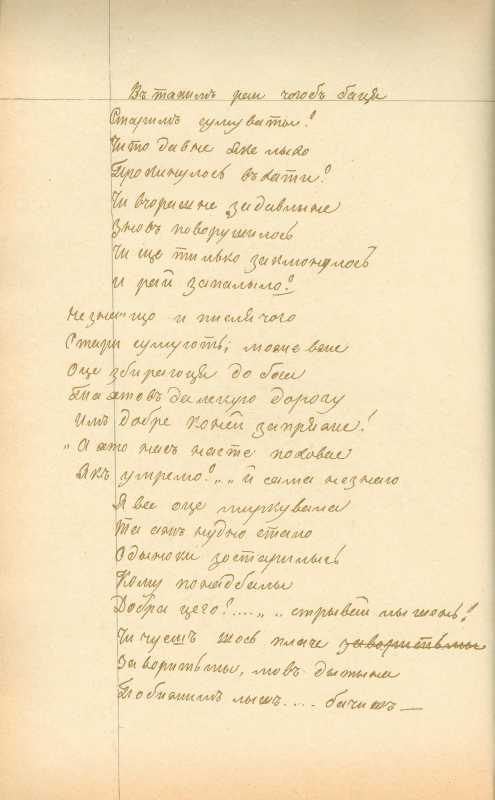 Въ такимъ раи чогобъ бацця
Старимъ сумуваты?
Чи то давне яке лыхо
Прокинулось въ хати?
Чи вчорашне задавлыне
Зновъ поворушилось
Чи ще тилько заклюнулось
и рай запалыло?
Не знаю що и писля чого
Стари сумують; може вже
Оце збираютця до бога
Та хтовъ далекую дорогу
имъ добре коней запряже!
„А хто насъ насте поховае
Якъ умремо?„„ й сама незнаю
Я все оце миркувала
Та ажъ нудно стало
Одыноки зостарилысь
Кому понадбалы
Добра цего?....„ „ стрывай лышень!
Чи чуешъ щось плаче заворитьмы
За воритьмы, мовъ дытына
Побижимъ лышъ.... бачишъ —